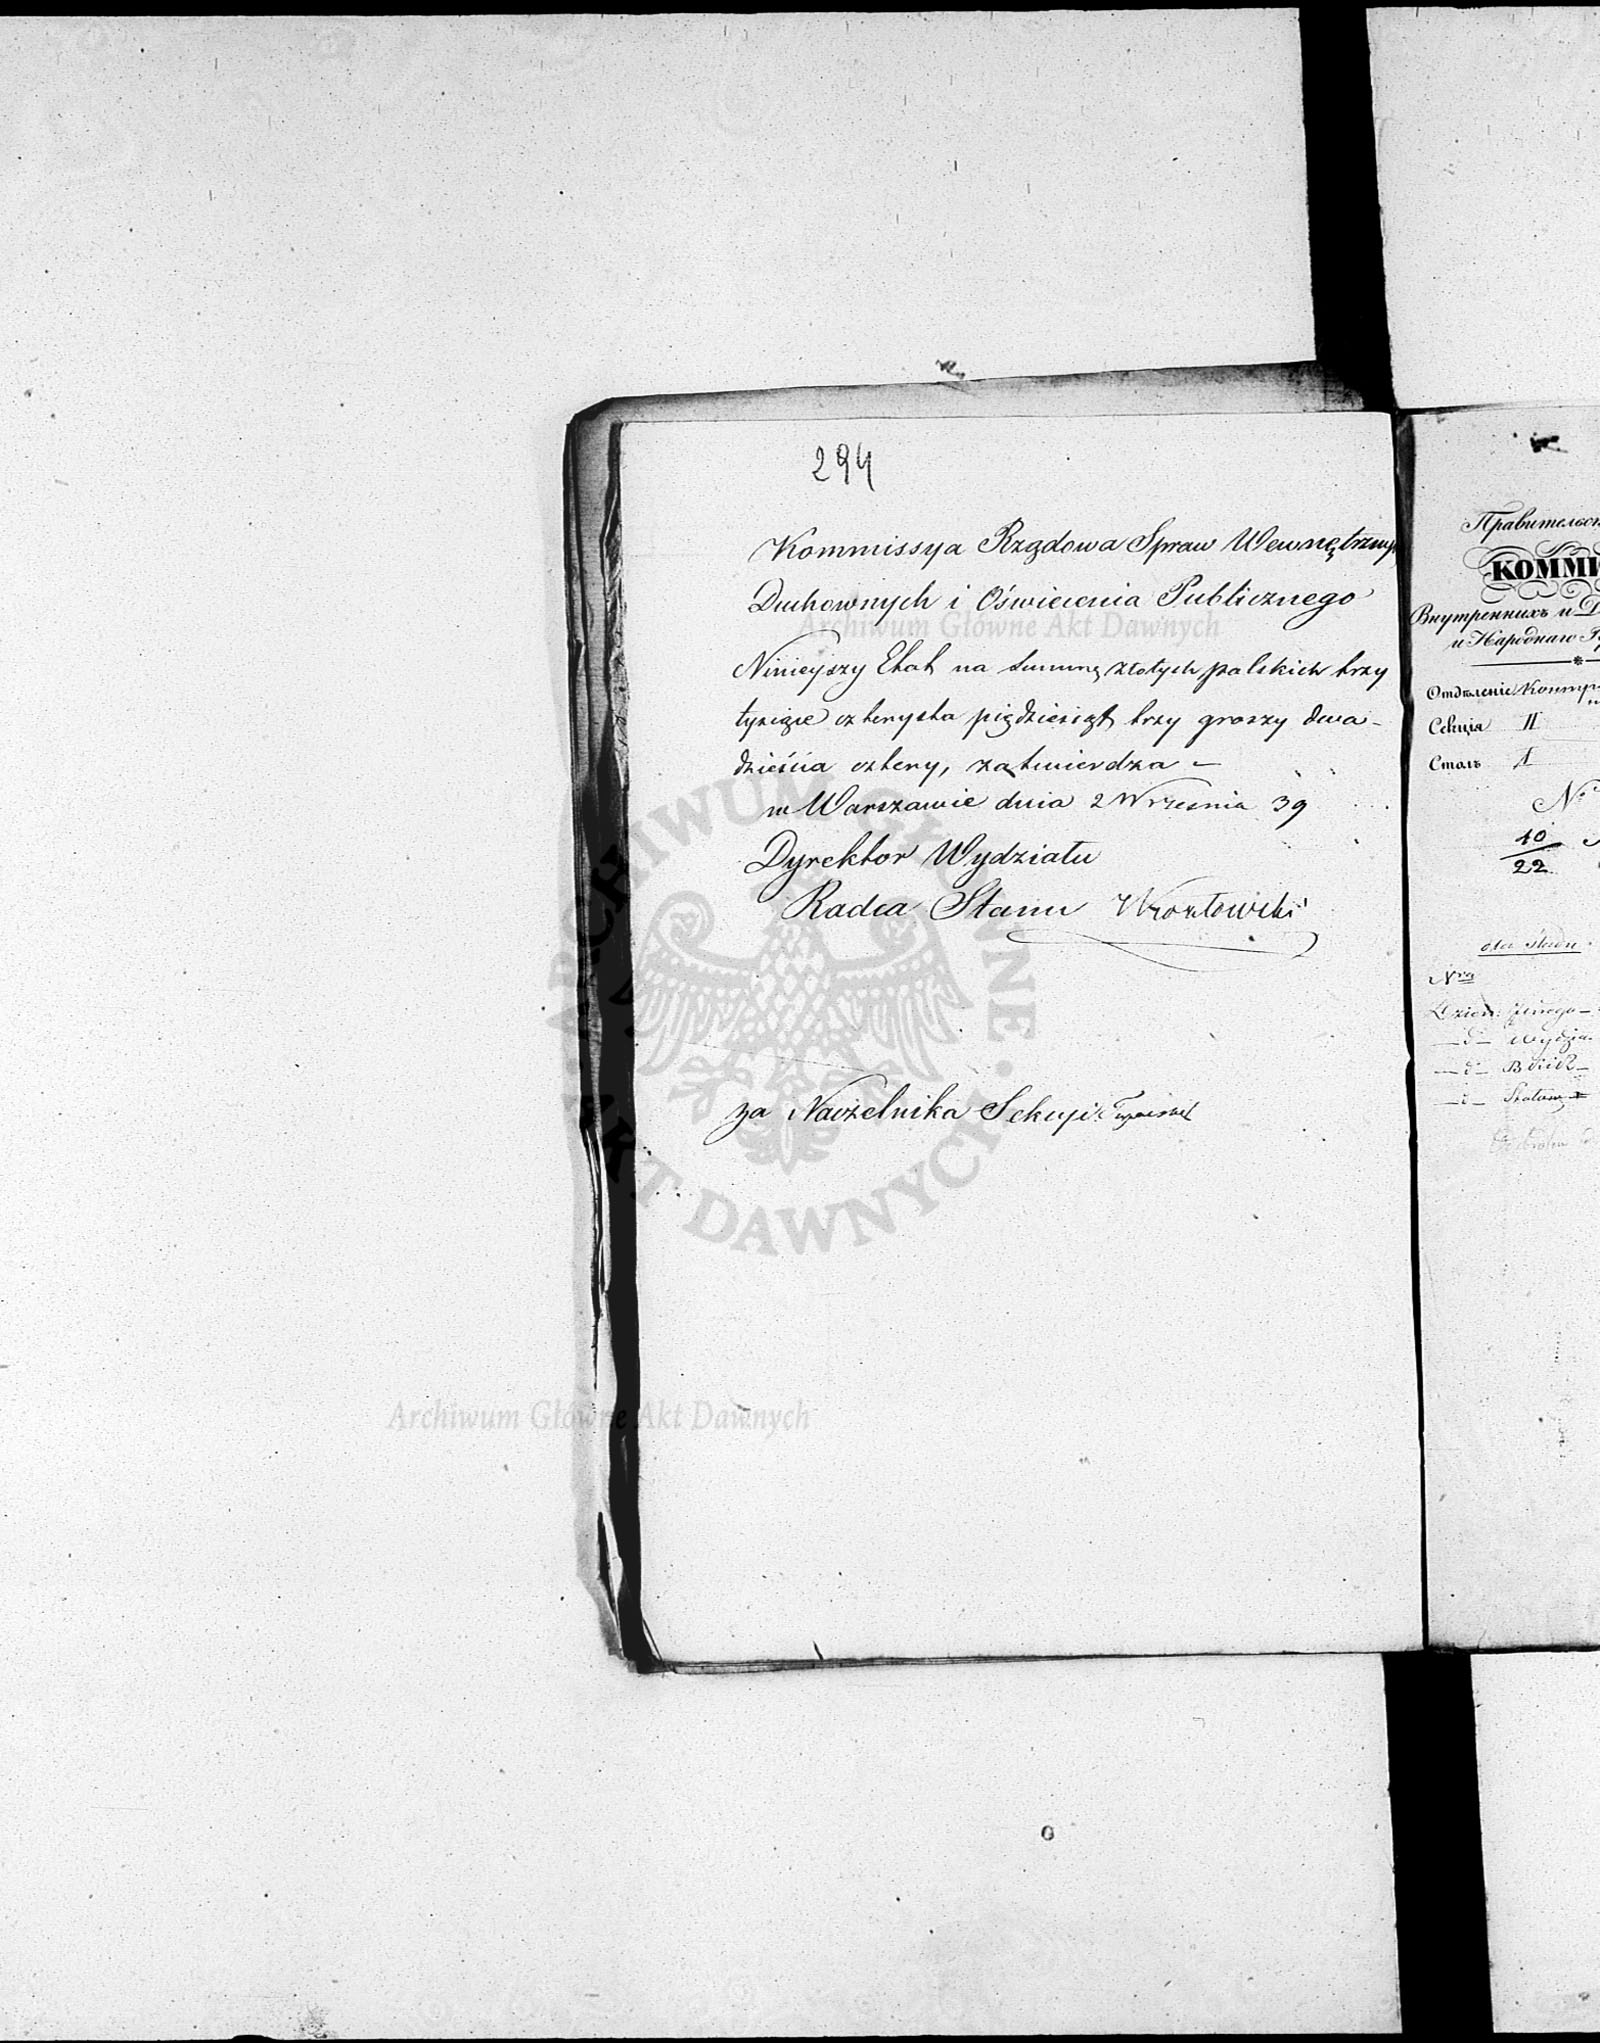 294
Kommissya Rządowa Spraw Wewnętrznych
Duchownych i Oświecenia Publicznego
Archiwum Główne Akt Dawnych
Niniejszy Etat na Summę złotych polskich trzy
tysiące czterysta pięćdziesiąt trzy groszy dwa-
dzieścia cztery, zatwierdza –
w Warszawie dnia 2 Września 39
Dyrektor Wydziału
Radca Stanu
za Naczelnika Sekcyi
ARCHIWUM GŁÓWNE AKT DAWNYCH
Archiwum Główne Akt Dawnych
Правительст
КОММИ
Внутреннихъ и Д
и Народнаго П
Отдѣленіе
Секція II
Столъ 1
N°
10
22
Nra